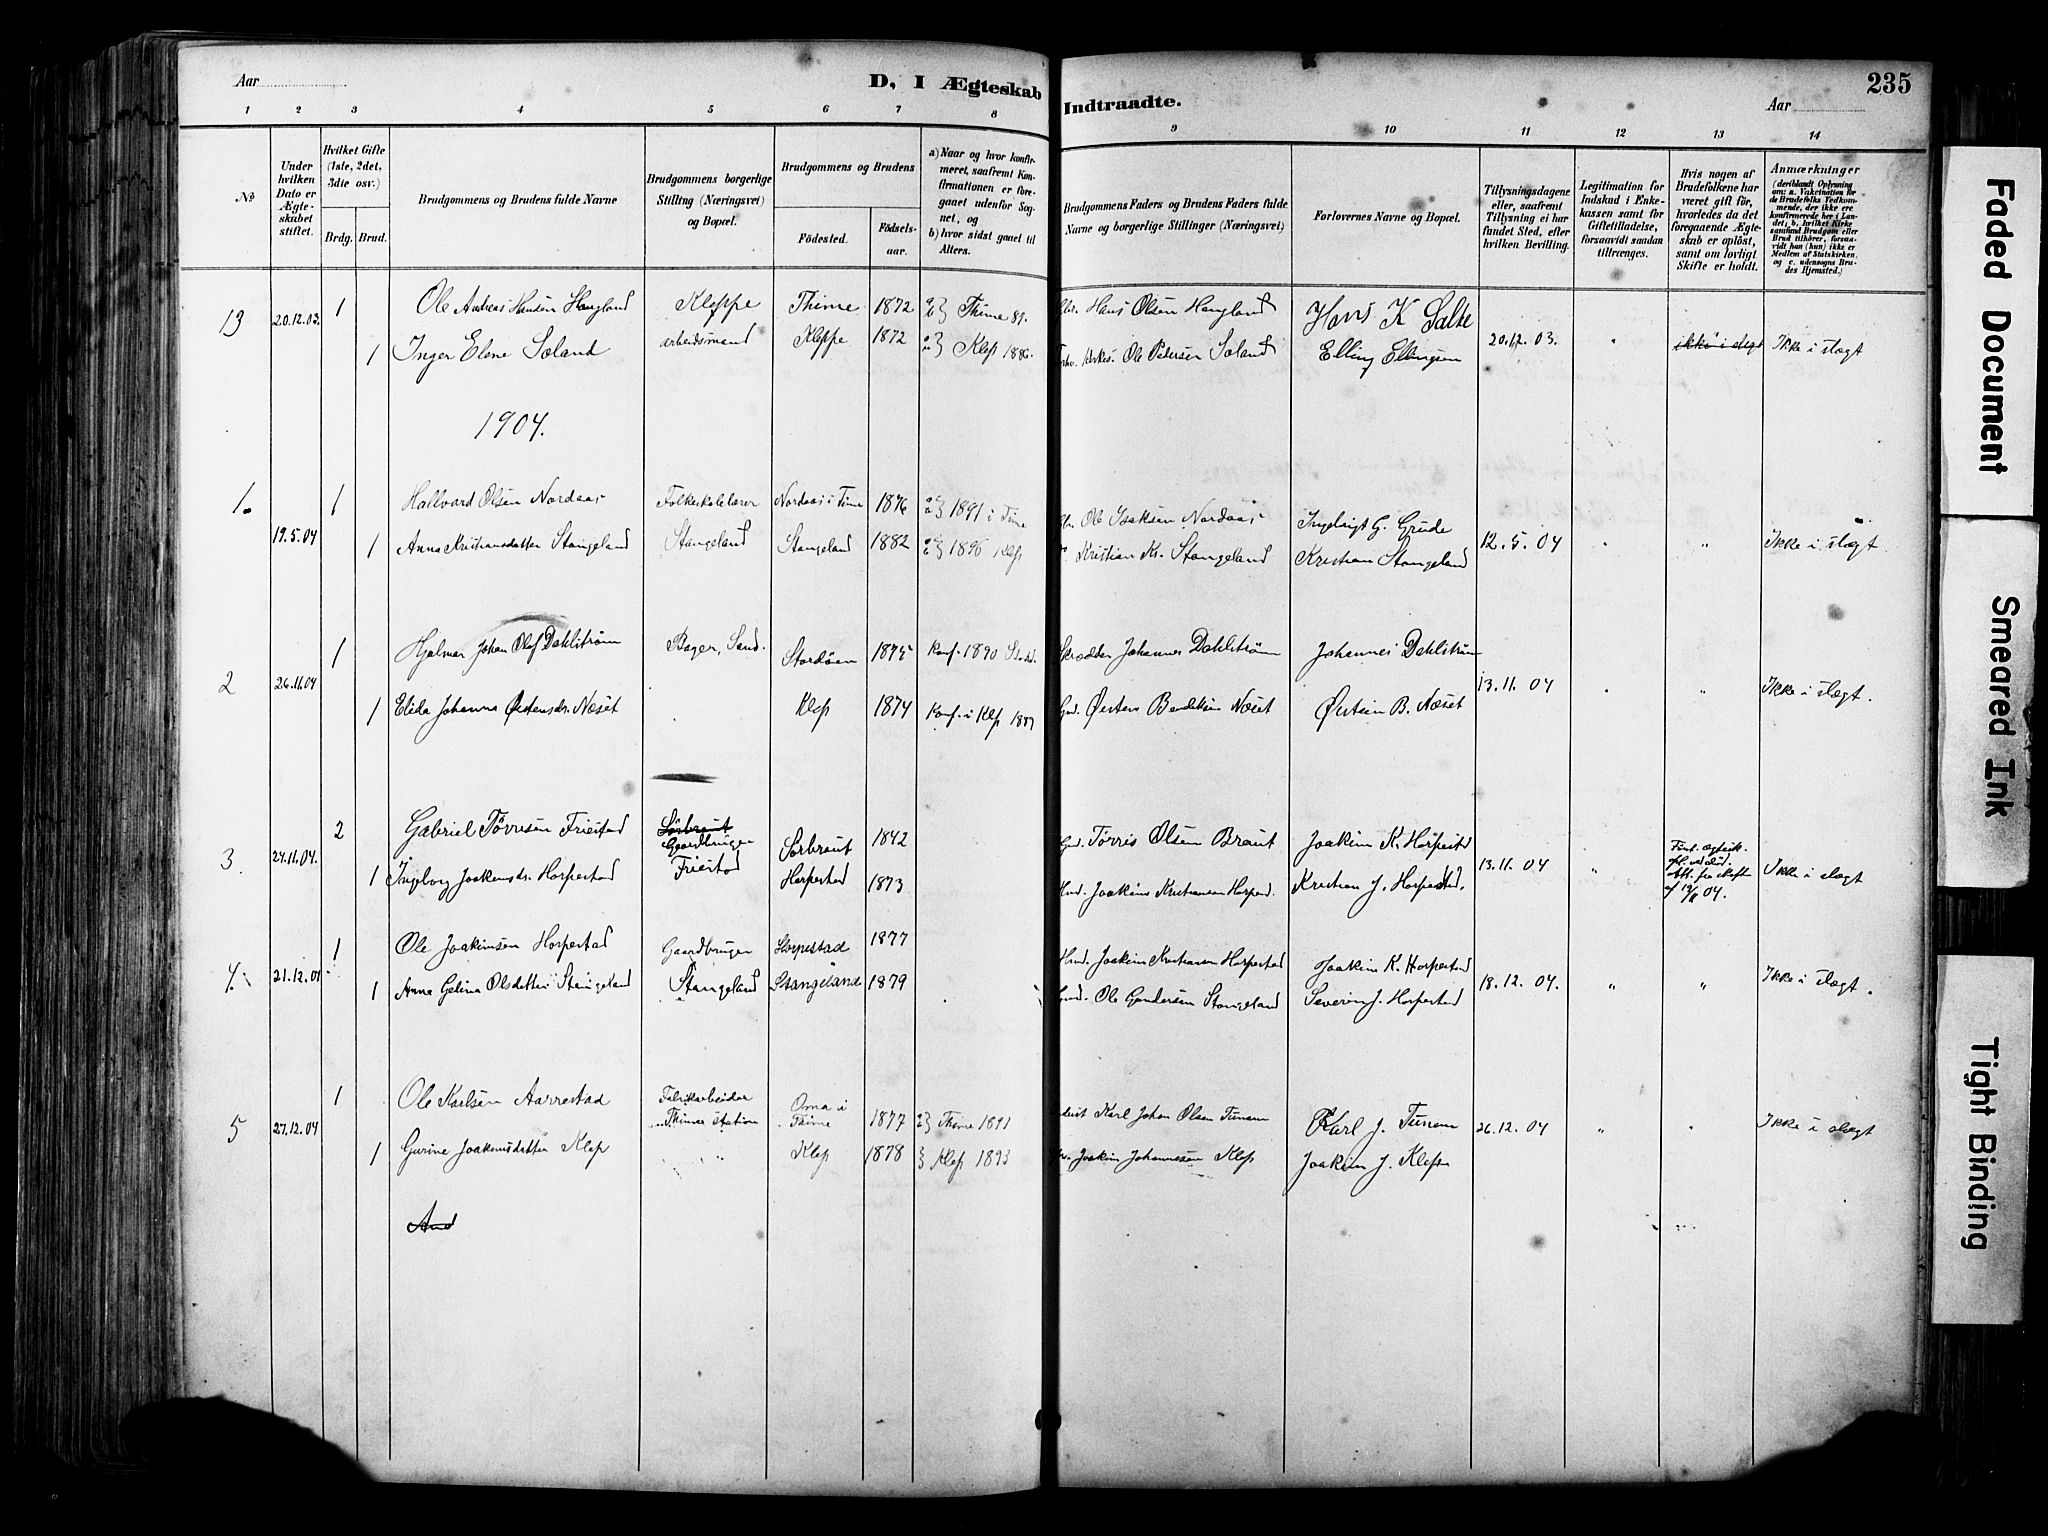 Aar
D, I Ægteskab
Indtraadte.
Aar
235
1 2 3 4 5 6 7 8 9 10 11 12 13 14
No
Under hvilken Dato er Ægteskabet stiftet.
Hvilket Gifte (1ste, 2det, 3die osv.)
Brdg. Brud.
Brudgommens og Brudens fulde Navne
Brudgommens borgerlige Stilling (Næringsvei) og Bopæl.
Brudgommens og Brudens
Fødested. Fødselsaar.
a) Naar og hvor konfirmeret, saafremt Konfirmationen er foregaaet udenfor Sognet, og
b) hvor sidst gaaet til Alters.
Brudgommens Faders og Brudens Faders fulde Navne og borgerlige Stillinger (Næringsvei)
Forlovernes Navne og Bopæl.
Tillysningsdagene eller, saafremt Tillysning ei har fundet Sted, efter hvilken Bevilling.
Legitimation for Indskud i Enkekassen samt for Giftetilladelse, forsaavidt saadan tiltrænges.
Hvis nogen af Brudefolkene har været gift før, hvorledes da det foregaaende Ægteskab er opløst, samt om lovligt Skifte er holdt.
Anmærkninger
(deriblandt Oplysning om: a. Vakcination for de Brudefolks Vedkommende, der ikke ere konfirmerede her i Landet; b. hvilket Kirkesamfund Brudgom eller Brud tilhører, forsaavidt han (hun) ikke er Medlem af Statskirken, og c. udensogns Brudes Hjemsted.)
13 20.12.03. 1 Ole Andreas Hansen Haugland Kleppe Thime 1872 Thime 87. Hans Olsen Haugland Hans K Salte
1 Inger Elene Soland arbeidsmand Kleppe 1872 Klep 1886 Ole Pedersen Soland Elling Ellingsen 20.12.03. " ikke i slegt Ikke i slægt
1904.
1. 1 Hallvard Olsen Nordaas Folkeskolelærer Nordaas i Time 1876 1891 i Time Ole Isaksen Nordaas Ingebrigt G. Grude
19.5.04 1 Anna Kristiansdatter Stangeland Stangeland Stangeland 1882 1896 i Klep Kristian Kr. Stangeland Kristian Stangeland 12.5.04 " " Ikke i slægt
2 26.11.04 1 Hjalmar Johan Olaf Dahlstrøm Bager, Sand. Stordøen 1875 Konf. 1890 Skrædder Johannes Dahlstrøm Johannes Dahlstrøm
1 Elida Johanna Østensdr. Næset Klep 1874 Konf. i Klep 1889 Gmd. Østen Bendiksen Næset Østein B. Næset 13.11.04 " " Ikke i slægt.
3. 24.11.04. 2 Gabriel Törresen Friestad Sørbraut Gaardbruger Sørbraut 1842 Gmd. Törris Olsen Braut Joakim K. Horpestad
1 Ingeborg Joakimsdr. Horpestad Friestad Horpestad 1873 Joakim Kristiansen Horpestad. Kristian J. Horpestad. 13.11.04 " Ikke i slægt
4. 21.12.04 1 Ole Joakimsen Horpestad Gaardbruger Horpestad 1877 Joakim Kristiansen Horpestad Joakim K. Horpestad
1 Anna Gelina Olsdatter Stangeland Stangeland Stangeland 1879 Gmd. Ole Gundersen Stangeland Severin J. Horpestad 18.12.04. " " Ikke i slægt.
5 27.12.04 1 Ole Karlsen Aarrestad Fabrikarbeider Thime Station Oma i Thime 1877 Thime 1891 Karl Johan Olsen Tunem Karl J. Tunem
1 Gurine Joakimsdatter Klep " " Klep 1878 Klep 1893 Joakim Johannesen Klep Joakim J. Klep 26.12.04 " " Ikke i slægt
And
Faded Document
Smeared Ink
Tight Binding